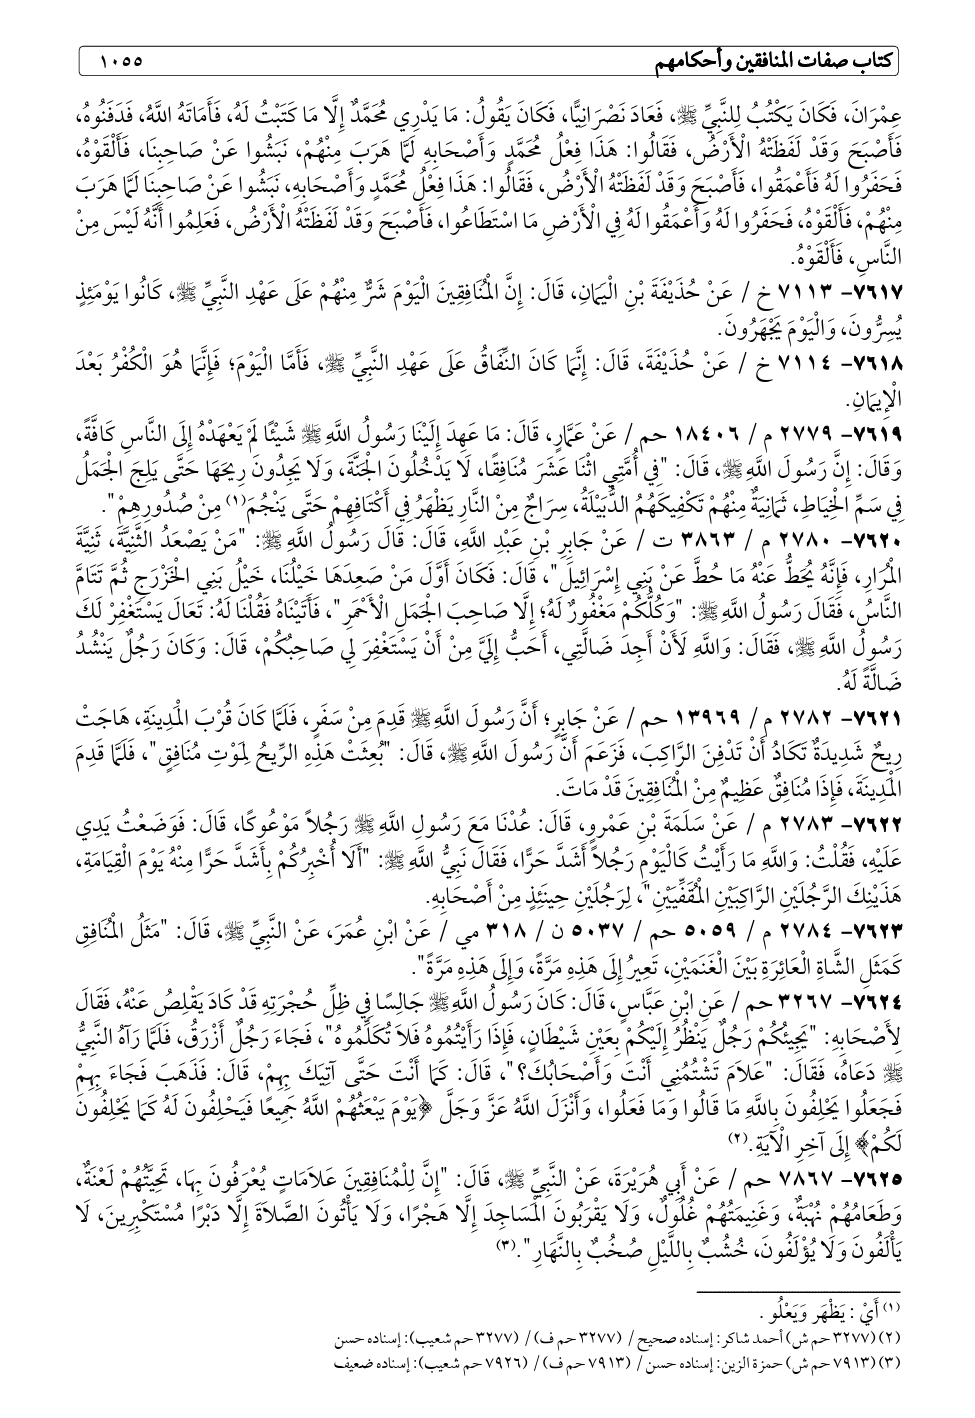 كتاب صفات المنافقين وأحكامهم ١٠٥٥
عِمْرَانَ، فَكَانَ يَكْتُبُ لِلنَّبِيِّ ﷺ، فَعَادَ نَصْرَانِيًّا، فَكَانَ يَقُولُ: مَا يَدْرِي مُحَمَّدٌ إِلَّا مَا كَتَبْتُ لَهُ، فَأَمَاتَهُ اللَّهُ، فَدَفَنُوهُ،
فَأَصْبَحَ وَقَدْ لَفَظَتْهُ الْأَرْضُ، فَقَالُوا: هَذَا فِعْلُ مُحَمَّدٍ وَأَصْحَابِهِ لَمَّا هَرَبَ مِنْهُمْ، نَبَشُوا عَنْ صَاحِبِنَا، فَأَلْقَوْهُ،
فَحَفَرُوا لَهُ فَأَعْمَقُوا، فَأَصْبَحَ وَقَدْ لَفَظَتْهُ الْأَرْضُ، فَقَالُوا: هَذَا فِعْلُ مُحَمَّدٍ وَأَصْحَابِهِ، نَبَشُوا عَنْ صَاحِبِنَا لَمَّا هَرَبَ
مِنْهُمْ، فَأَلْقَوْهُ، فَحَفَرُوا لَهُ وَأَعْمَقُوا لَهُ فِي الْأَرْضِ مَا اسْتَطَاعُوا، فَأَصْبَحَ وَقَدْ لَفَظَتْهُ الْأَرْضُ، فَعَلِمُوا أَنَّهُ لَيْسَ مِنْ
النَّاسِ، فَأَلْقَوْهُ.
٧٦١٧- ٧١١٣ خ / عَنْ حُذَيْفَةَ بْنِ الْيَمَانِ، قَالَ: إِنَّ الْمُنَافِقِينَ الْيَوْمَ شَرٌّ مِنْهُمْ عَلَى عَهْدِ النَّبِيِّ ﷺ، كَانُوا يَوْمَئِذٍ
يُسِرُّونَ، وَالْيَوْمَ يَجْهَرُونَ.
٧٦١٨- ٧١١٤ خ / عَنْ حُذَيْفَةَ، قَالَ: إِنَّمَا كَانَ النِّفَاقُ عَلَى عَهْدِ النَّبِيِّ ﷺ، فَأَمَّا الْيَوْمَ؛ فَإِنَّمَا هُوَ الْكُفْرُ بَعْدَ
الْإِيمَانِ.
٧٦١٩- ٢٧٧٩ م / ١٨٤٠٦ حم / عَنْ عَمَّارٍ، قَالَ: مَا عَهِدَ إِلَيْنَا رَسُولُ اللَّهِ ﷺ شَيْئًا لَمْ يَعْهَدْهُ إِلَى النَّاسِ كَافَّةً،
وَقَالَ: إِنَّ رَسُولَ اللَّهِ ﷺ، قَالَ: "فِي أُمَّتِي اثْنَا عَشَرَ مُنَافِقًا، لَا يَدْخُلُونَ الْجَنَّةَ، وَلَا يَجِدُونَ رِيحَهَا حَتَّى يَلِجَ الْجَمَلُ
فِي سَمِّ الْخِيَاطِ، ثَمَانِيَةٌ مِنْهُمْ تَكْفِيكَهُمُ الدُّبَيْلَةُ، سِرَاجٌ مِنَ النَّارِ يَظْهَرُ فِي أَكْتَافِهِمْ حَتَّى يَنْجُمَ(١) مِنْ صُدُورِهِمْ".
٧٦٢٠- ٢٧٨٠ م / ٣٨٦٣ ت / عَنْ جَابِرِ بْنِ عَبْدِ اللَّهِ، قَالَ: قَالَ رَسُولُ اللَّهِ ﷺ: "مَنْ يَصْعَدُ الثَّنِيَّةَ، ثَنِيَّةَ
الْمُرَارِ، فَإِنَّهُ يُحَطُّ عَنْهُ مَا حُطَّ عَنْ بَنِي إِسْرَائِيلَ"، قَالَ: فَكَانَ أَوَّلَ مَنْ صَعِدَهَا خَيْلُنَا، خَيْلُ بَنِي الْخَزْرَجِ ثُمَّ تَتَامَّ
النَّاسُ، فَقَالَ رَسُولُ اللَّهِ ﷺ: "وَكُلُّكُمْ مَغْفُورٌ لَهُ؛ إِلَّا صَاحِبَ الْجَمَلِ الْأَحْمَرِ"، فَأَتَيْنَاهُ فَقُلْنَا لَهُ: تَعَالَ يَسْتَغْفِرْ لَكَ
رَسُولُ اللَّهِ ﷺ، فَقَالَ: وَاللَّهِ لَأَنْ أَجِدَ ضَالَّتِي، أَحَبُّ إِلَيَّ مِنْ أَنْ يَسْتَغْفِرَ لِي صَاحِبُكُمْ، قَالَ: وَكَانَ رَجُلٌ يَنْشُدُ
ضَالَّةً لَهُ.
٧٦٢١- ٢٧٨٢ م / ١٣٩٦٩ حم / عَنْ جَابِرٍ؛ أَنَّ رَسُولَ اللَّهِ ﷺ قَدِمَ مِنْ سَفَرٍ، فَلَمَّا كَانَ قُرْبَ الْمَدِينَةِ، هَاجَتْ
رِيحٌ شَدِيدَةٌ تَكَادُ أَنْ تَدْفِنَ الرَّاكِبَ، فَزَعَمَ أَنَّ رَسُولَ اللَّهِ ﷺ، قَالَ: "بُعِثَتْ هَذِهِ الرِّيحُ لِمَوْتِ مُنَافِقٍ"، فَلَمَّا قَدِمَ
الْمَدِينَةَ، فَإِذَا مُنَافِقٌ عَظِيمٌ مِنَ الْمُنَافِقِينَ قَدْ مَاتَ.
٧٦٢٢- ٢٧٨٣ م / عَنْ سَلَمَةَ بْنِ عَمْرٍو، قَالَ: عُدْنَا مَعَ رَسُولِ اللَّهِ ﷺ رَجُلاً مَوْعُوكًا، قَالَ: فَوَضَعْتُ يَدِي
عَلَيْهِ، فَقُلْتُ: وَاللَّهِ مَا رَأَيْتُ كَالْيَوْمِ رَجُلاً أَشَدَّ حَرًّا، فَقَالَ نَبِيُّ اللَّهِ ﷺ: "أَلَا أُخْبِرُكُمْ بِأَشَدَّ حَرًّا مِنْهُ يَوْمَ الْقِيَامَةِ،
هَذَيْنِكَ الرَّجُلَيْنِ الرَّاكِبَيْنِ الْمُقَفِّيَيْنِ"، لِرَجُلَيْنِ حِينَئِذٍ مِنْ أَصْحَابِهِ.
٧٦٢٣- ٢٧٨٤ م / ٥٠٥٩ حم / ٥٠٣٧ ن / ٣١٨ مي / عَنْ ابْنِ عُمَرَ، عَنْ النَّبِيِّ ﷺ، قَالَ: "مَثَلُ الْمُنَافِقِ
كَمَثَلِ الشَّاةِ الْعَائِرَةِ بَيْنَ الْغَنَمَيْنِ، تَعِيرُ إِلَى هَذِهِ مَرَّةً، وَإِلَى هَذِهِ مَرَّةً".
٧٦٢٤- ٣٢٦٧ حم / عَنِ ابْنِ عَبَّاسٍ، قَالَ: كَانَ رَسُولُ اللَّهِ ﷺ جَالِسًا فِي ظِلِّ حُجْرَتِهِ قَدْ كَادَ يَقْلِصُ عَنْهُ، فَقَالَ
لِأَصْحَابِهِ: "يَجِيئُكُمْ رَجُلٌ يَنْظُرُ إِلَيْكُمْ بِعَيْنِ شَيْطَانٍ، فَإِذَا رَأَيْتُمُوهُ فَلاَ تُكَلِّمُوهُ"، فَجَاءَ رَجُلٌ أَزْرَقُ، فَلَمَّا رَآهُ النَّبِيُّ
ﷺ دَعَاهُ، فَقَالَ: "عَلاَمَ تَشْتُمُنِي أَنْتَ وَأَصْحَابُكَ؟"، قَالَ: كَمَا أَنْتَ حَتَّى آتِيَكَ بِهِمْ، قَالَ: فَذَهَبَ فَجَاءَ بِهِمْ
فَجَعَلُوا يَحْلِفُونَ بِاللَّهِ مَا قَالُوا وَمَا فَعَلُوا، وَأَنْزَلَ اللَّهُ عَزَّ وَجَلَّ ﴿يَوْمَ يَبْعَثُهُمْ اللَّهُ جَمِيعًا فَيَحْلِفُونَ لَهُ كَمَا يَحْلِفُونَ
لَكُمْ﴾ إِلَى آخِرِ الْآيَةِ.(٢)
٧٦٢٥- ٧٨٦٧ حم / عَنْ أَبِي هُرَيْرَةَ، عَنْ النَّبِيِّ ﷺ، قَالَ: "إِنَّ لِلْمُنَافِقِينَ عَلاَمَاتٍ يُعْرَفُونَ بِهَا، تَحِيَّتُهُمْ لَعْنَةٌ،
وَطَعَامُهُمْ نُهْبَةٌ، وَغَنِيمَتُهُمْ غُلُولٌ، وَلَا يَقْرَبُونَ الْمَسَاجِدَ إِلَّا هَجْرًا، وَلَا يَأْتُونَ الصَّلاَةَ إِلَّا دَبْرًا مُسْتَكْبِرِينَ، لَا
يَأْلَفُونَ وَلَا يُؤْلَفُونَ، خُشُبٌ بِاللَّيْلِ صُخُبٌ بِالنَّهَارِ".(٣)
(١) أَيْ: يَظْهَر وَيَعْلُو .
(٢) (٣٢٧٧ حم ش) أحمد شاكر: إسناده صحيح / (٣٢٧٧ حم ف) / (٣٢٧٧ حم شعيب): إسناده حسن
(٣) (٧٩١٣ حم ش) حمزة الزين: إسناده حسن / (٧٩١٣ حم ف) / (٧٩٢٦ حم شعيب): إسناده ضعيف